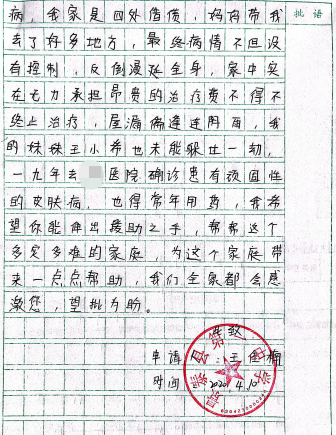 病，我家是四处借债，妈妈带我
去了好多地方，最终病情不但没
有控制，反倒漫延全身，家中实
在无力承担昂贵的治疗费不得不
终止治疗，屋漏偏逢连阴雨，我
的妹妹王小希也未能躲过一劫，
一九年去 医院确诊患有顽固性
的皮肤病，也得常年用药，我希
望你能伸出援助之手，帮帮这个
多灾多难的家庭，为这个家庭带
来一点点帮助，我们全家都会感
激您，望批为助。
此致
申请 ：王佳
时间 2020.4.10
批语